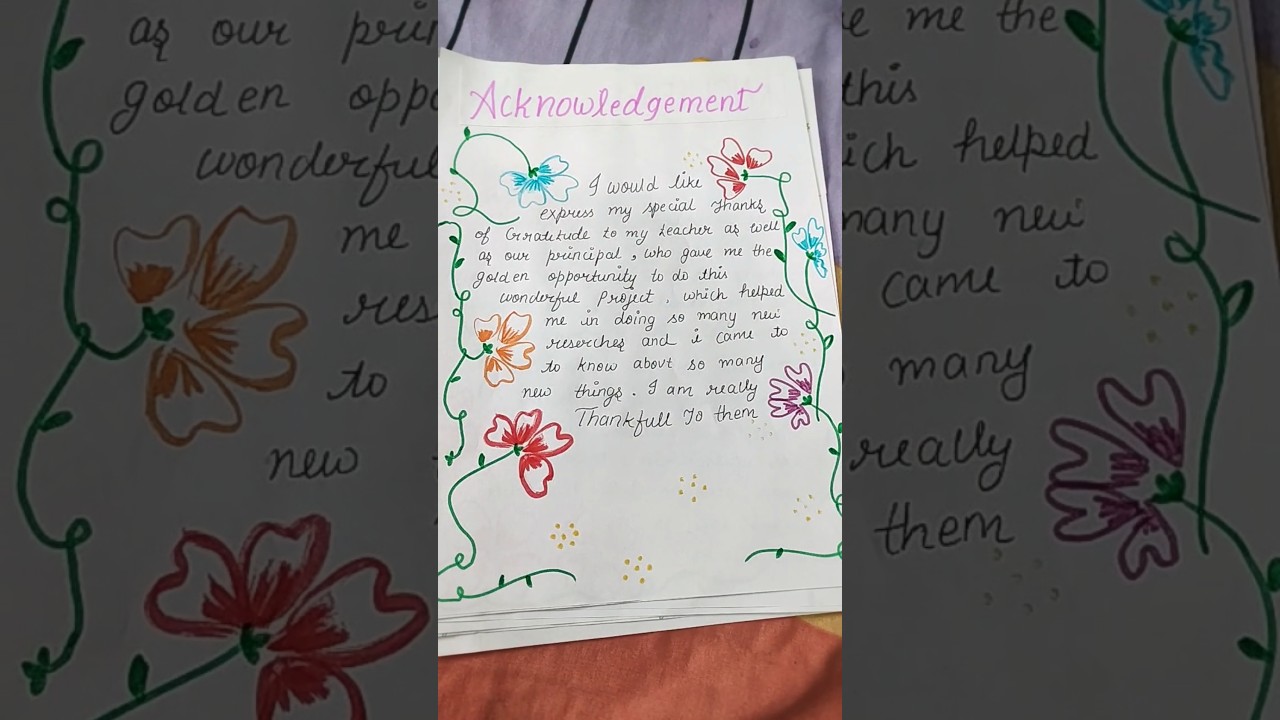 Acknowledgement
I would like
express my special Thanks
of Gratitude to my teacher as well
as our principal, who gave me the
golden opportunity to do this
wonderful Project, which helped
me in doing so many new
reserches and i came to
to know about so many
new things. I am really
Thankfull To them